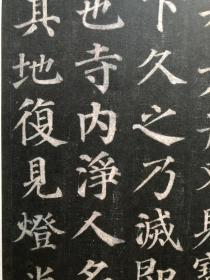 下久之乃滅即
也寺内淨人名
其地復見燈